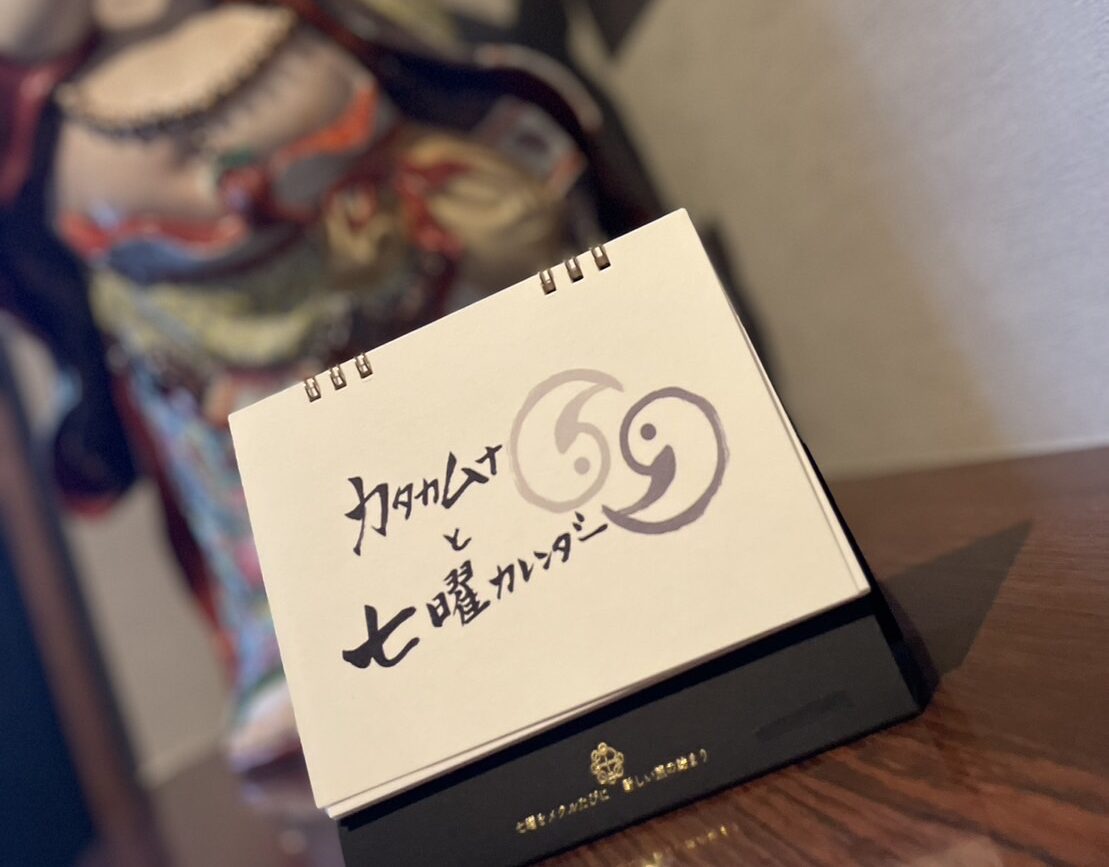 カタカムナ
と
七曜カレンダー
七曜をメクルたびに 新しい旅の始まり